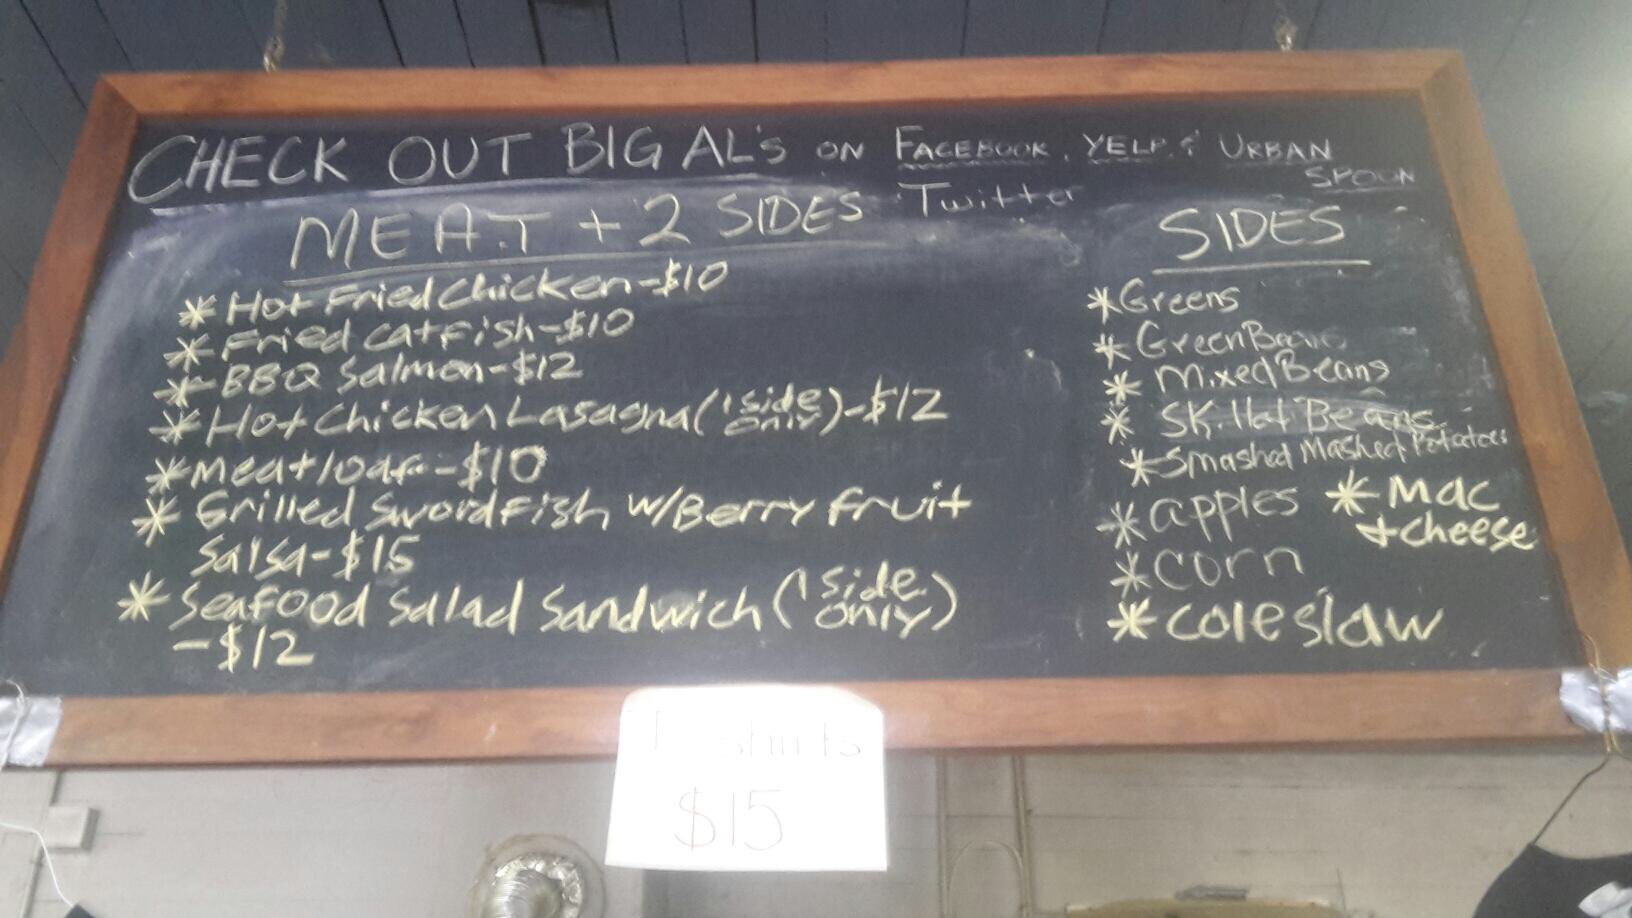 CHECK OUT BIG AL'S ON FACEBOOK, YELP, & URBAN
SPOON
Twitter
MEAT + 2 SIDES
* Hot Fried Chicken-$10
* Fried Catfish-$10
* BBQ Salmon-$12
* Hot Chicken Lasagna (1 side only)-$12
* Meatloaf-$10
* Grilled Swordfish w/Berry Fruit
Salsa-$15
* Seafood Salad Sandwich (1 side only)
-$12
SIDES
* Greens
* Green Beans
* Mixed Beans
* Skillet Beans
* Smashed Mashed Potatoes
* apples
* Mac
+ cheese
* corn
* coleslaw
T shirts
$15